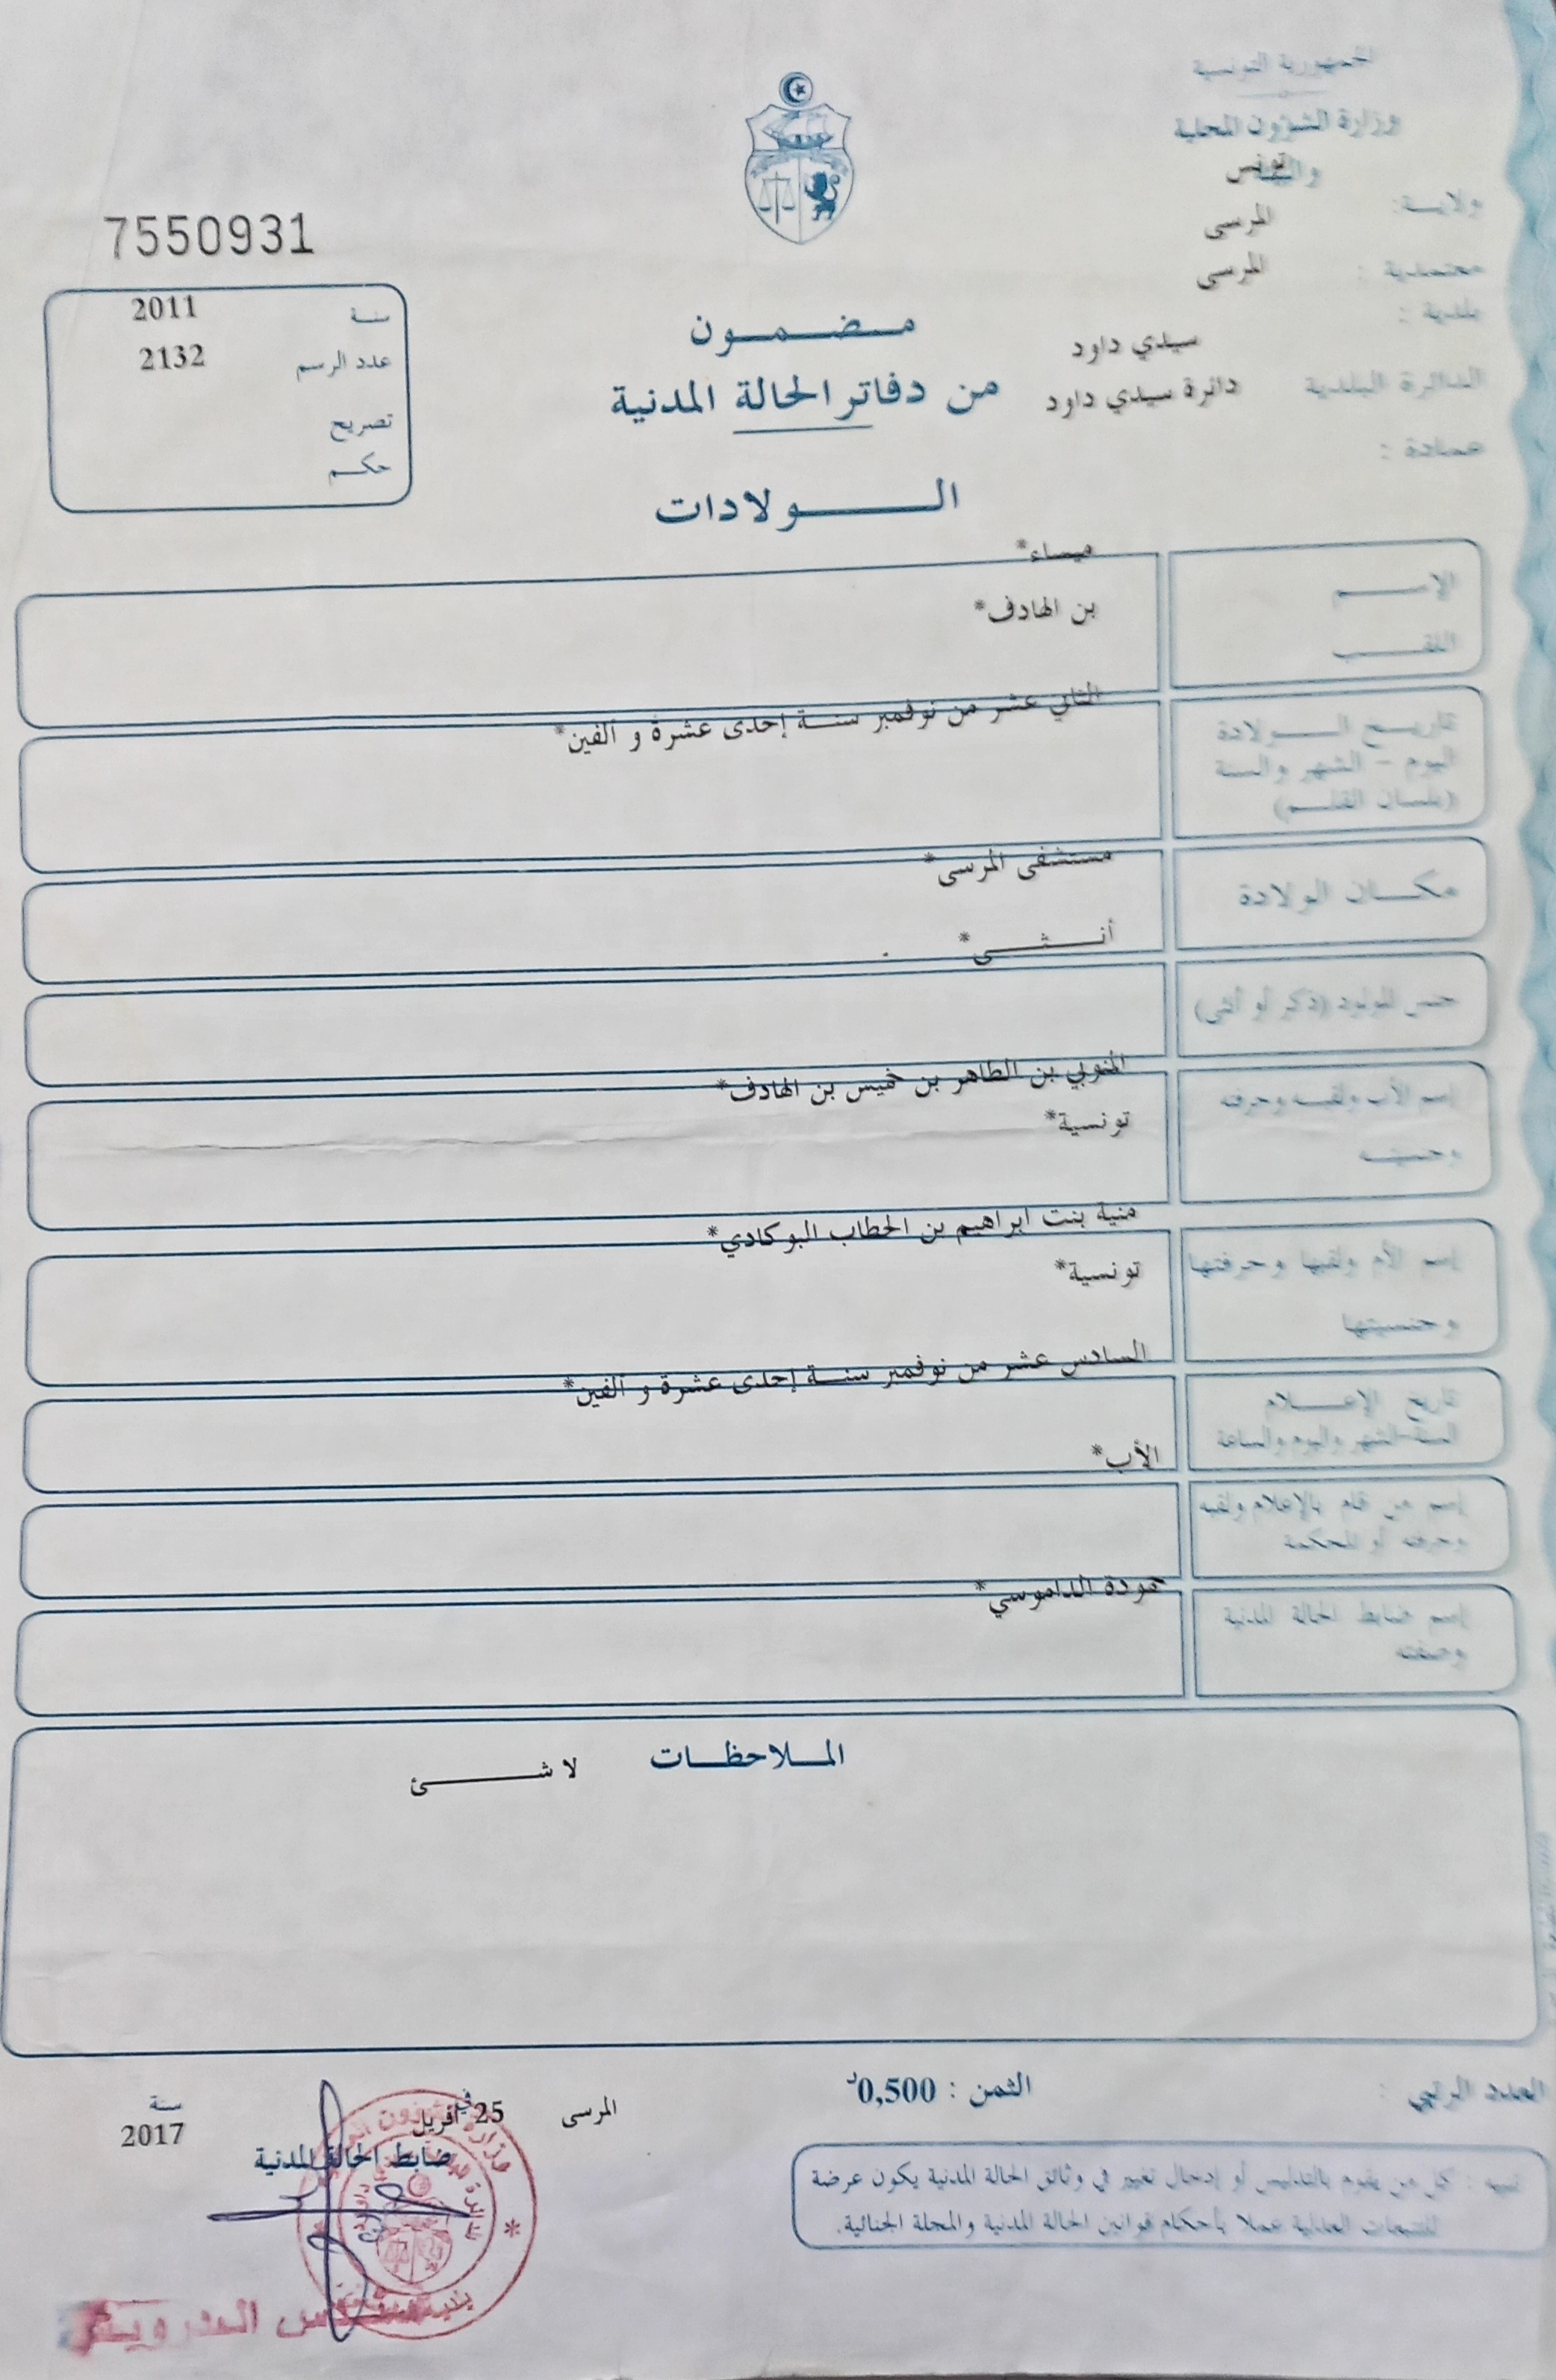 الجمهورية التونسية
وزارة الشؤون المحلية
والبيئة
ولايـــة: تونس
معتمدية : المرسى
بلدية : المرسى
الدائرة البلدية سيدي داود
عمادة : دائرة سيدي داود
7550931
سنـة 2011
عدد الرسم 2132
تصريح
حكـم
مـضـمـون
من دفاتر الحالة المدنية
الـولادات
الإســـم ميساء*
اللقـــب بن الهادف*
تاريـخ الـــولادة الثاني عشر من نوفمبر سنـة إحدى عشرة و ألفين*
اليوم - الشهر والسنة
(بلسان القلـم)
مكـان الولادة مستشفى المرسى*
جنس المولود (ذكر أو أنثى) أنـثـى*
إسم الأب ولقبـه وحرفته المنوبي بن الطاهر بن خميس بن الهادف*
وجنسيتـه تونسية*
إسم الأم ولقبها وحرفتها منية بنت ابراهيم بن الحطاب البوكادي*
وجنسيتها تونسية*
تاريخ الإعـــلام السادس عشر من نوفمبر سنـة إحدى عشرة و ألفين*
السنة-الشهر واليوم والساعة
إسم من قام بالإعلام ولقبه الأب*
وحرفته أو المحكمة
إسم ضابط الحالة المدنية حمودة الداموسي*
وصفته
الملاحظات لا شـئ
العدد الرتبي :
الثمن : 0,500د
المرسى في 25 أفريل سنـة 2017
ضابط الحالة المدنية
تنبيه : كل من يقوم بالتدليس أو إدخال تغيير في وثائق الحالة المدنية يكون عرضة
للتتبعات العدلية عملا بأحكام قوانين الحالة المدنية والمجلة الجنائية.